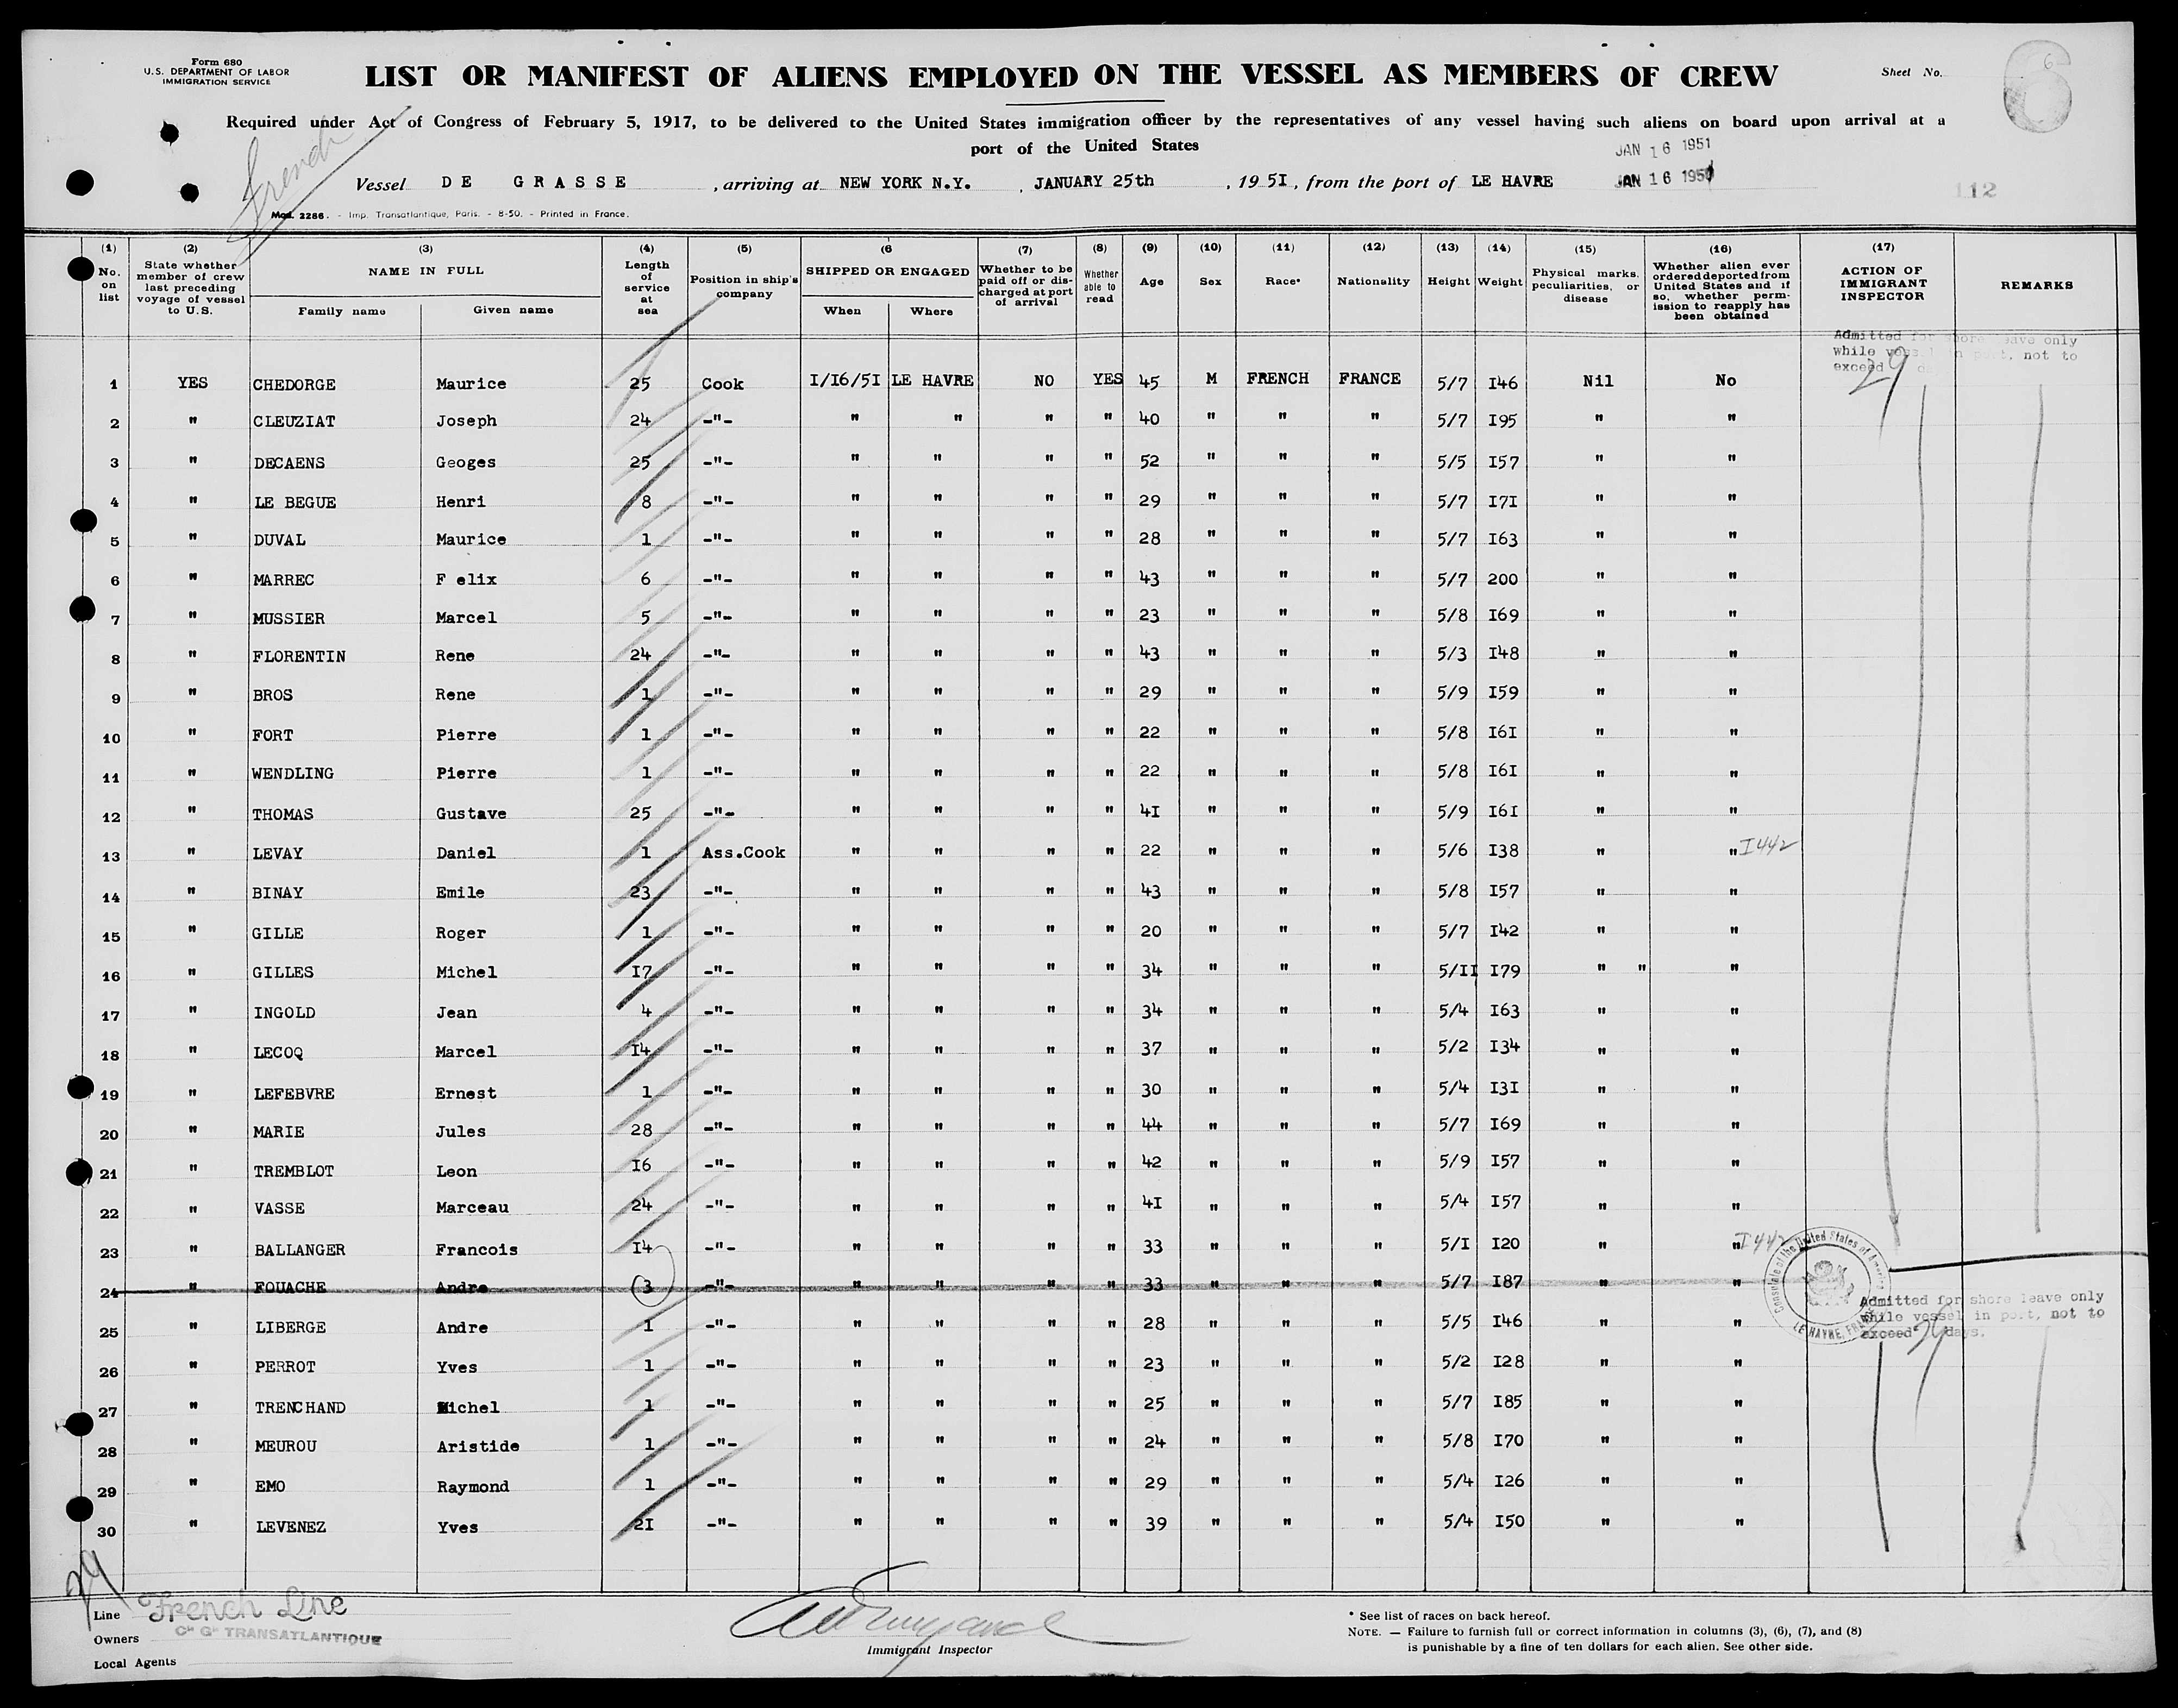 Form 680
U.S. DEPARTMENT OF LABOR
IMMIGRATION SERVICE
LIST OR MANIFEST OF ALIENS EMPLOYED ON THE VESSEL AS MEMBERS OF CREW
Sheet No. 6
6
Required under Act of Congress of February 5, 1917, to be delivered to the United States immigration officer by the representatives of any vessel having such aliens on board upon arrival at a
port of the United States
JAN 16 1951
French
Vessel DE GRASSE, arriving at NEW YORK N.Y., JANUARY 25th, 19 5I, from the port of LE HAVRE JAN 16 1951
112
Mod. 2286. - Imp. Transatlantique, Paris. - 8-50. - Printed in France.
(1) (2) (3) (4) (5) (6 (7) (8) (9) (10) (11) (12) (13) (14) (15) (16) (17)
No. on list
State whether member of crew last preceding voyage of vessel to U.S.
NAME IN FULL
Family name Given name
Length of service at sea
Position in ship's company
SHIPPED OR ENGAGED
When Where
Whether to be paid off or discharged at port of arrival
Whether able to read
Age Sex Race* Nationality Height Weight
Physical marks, peculiarities, or disease
Whether alien ever ordered deported from United States and if so, whether permission to reapply has been obtained
ACTION OF IMMIGRANT INSPECTOR
REMARKS
Admitted for shore leave only
while vessel in port, not to
exceed 29 d
1 YES CHEDORGE Maurice 25 Cook I/I6/5I LE HAVRE NO YES 45 M FRENCH FRANCE 5/7 I46 Nil No
2 " CLEUZIAT Joseph 24 -"- " " " " 40 " " " 5/7 I95 " "
3 " DECAENS Geoges 25 -"- " " " " 52 " " " 5/5 I57 " "
4 " LE BEGUE Henri 8 -"- " " " " 29 " " " 5/7 I7I " "
5 " DUVAL Maurice 1 -"- " " " " 28 " " " 5/7 I63 " "
6 " MARREC F elix 6 -"- " " " " 43 " " " 5/7 200 " "
7 " MUSSIER Marcel 5 -"- " " " " 23 " " " 5/8 I69 " "
8 " FLORENTIN Rene 24 -"- " " " " 43 " " " 5/3 I48 " "
9 " BROS Rene 1 -"- " " " " 29 " " " 5/9 I59 " "
10 " FORT Pierre 1 -"- " " " " 22 " " " 5/8 I6I " "
11 " WENDLING Pierre 1 -"- " " " " 22 " " " 5/8 I6I " "
12 " THOMAS Gustave 25 -"- " " " " 4I " " " 5/9 I6I " "
13 " LEVAY Daniel 1 Ass.Cook " " " " 22 " " " 5/6 I38 " " I442
14 " BINAY Emile 23 -"- " " " " 43 " " " 5/8 I57 " "
15 " GILLE Roger 1 -"- " " " " 20 " " " 5/7 I42 " "
16 " GILLES Michel I7 -"- " " " " 34 " " " 5/II I79 " " "
17 " INGOLD Jean 4 -"- " " " " 34 " " " 5/4 I63 " "
18 " LECOQ Marcel I4 -"- " " " " 37 " " " 5/2 I34 " "
19 " LEFEBVRE Ernest 1 -"- " " " " 30 " " " 5/4 I3I " "
20 " MARIE Jules 28 -"- " " " " 44 " " " 5/7 I69 " "
21 " TREMBLOT Leon I6 -"- " " " " 42 " " " 5/9 I57 " "
22 " VASSE Marceau 24 -"- " " " " 4I " " " 5/4 I57 " "
23 " BALLANGER Francois I4 -"- " " " " 33 " " " 5/I I20 " " I442
24 " FOUACHE Andre 3 -"- " " " " 33 " " " 5/7 I87 " "
Consulate of the United States of America
LE HAVRE, FRANCE
Admitted for shore leave only
while vessel in port, not to
exceed 29 days.
25 " LIBERGE Andre 1 -"- " " " " 28 " " " 5/5 I46 " "
26 " PERROT Yves 1 -"- " " " " 23 " " " 5/2 I28 " "
27 " TRENCHAND Michel 1 -"- " " " " 25 " " " 5/7 I85 " "
28 " MEUROU Aristide 1 -"- " " " " 24 " " " 5/8 I70 " "
29 " EMO Raymond 1 -"- " " " " 29 " " " 5/4 I26 " "
30 " LEVENEZ Yves 2I -"- " " " " 39 " " " 5/4 I50 " "
29
Line French Line
Owners Cie Gle TRANSATLANTIQUE
Local Agents
Immigrant Inspector
* See list of races on back hereof.
NOTE. — Failure to furnish full or correct information in columns (3), (6), (7), and (8)
is punishable by a fine of ten dollars for each alien. See other side.